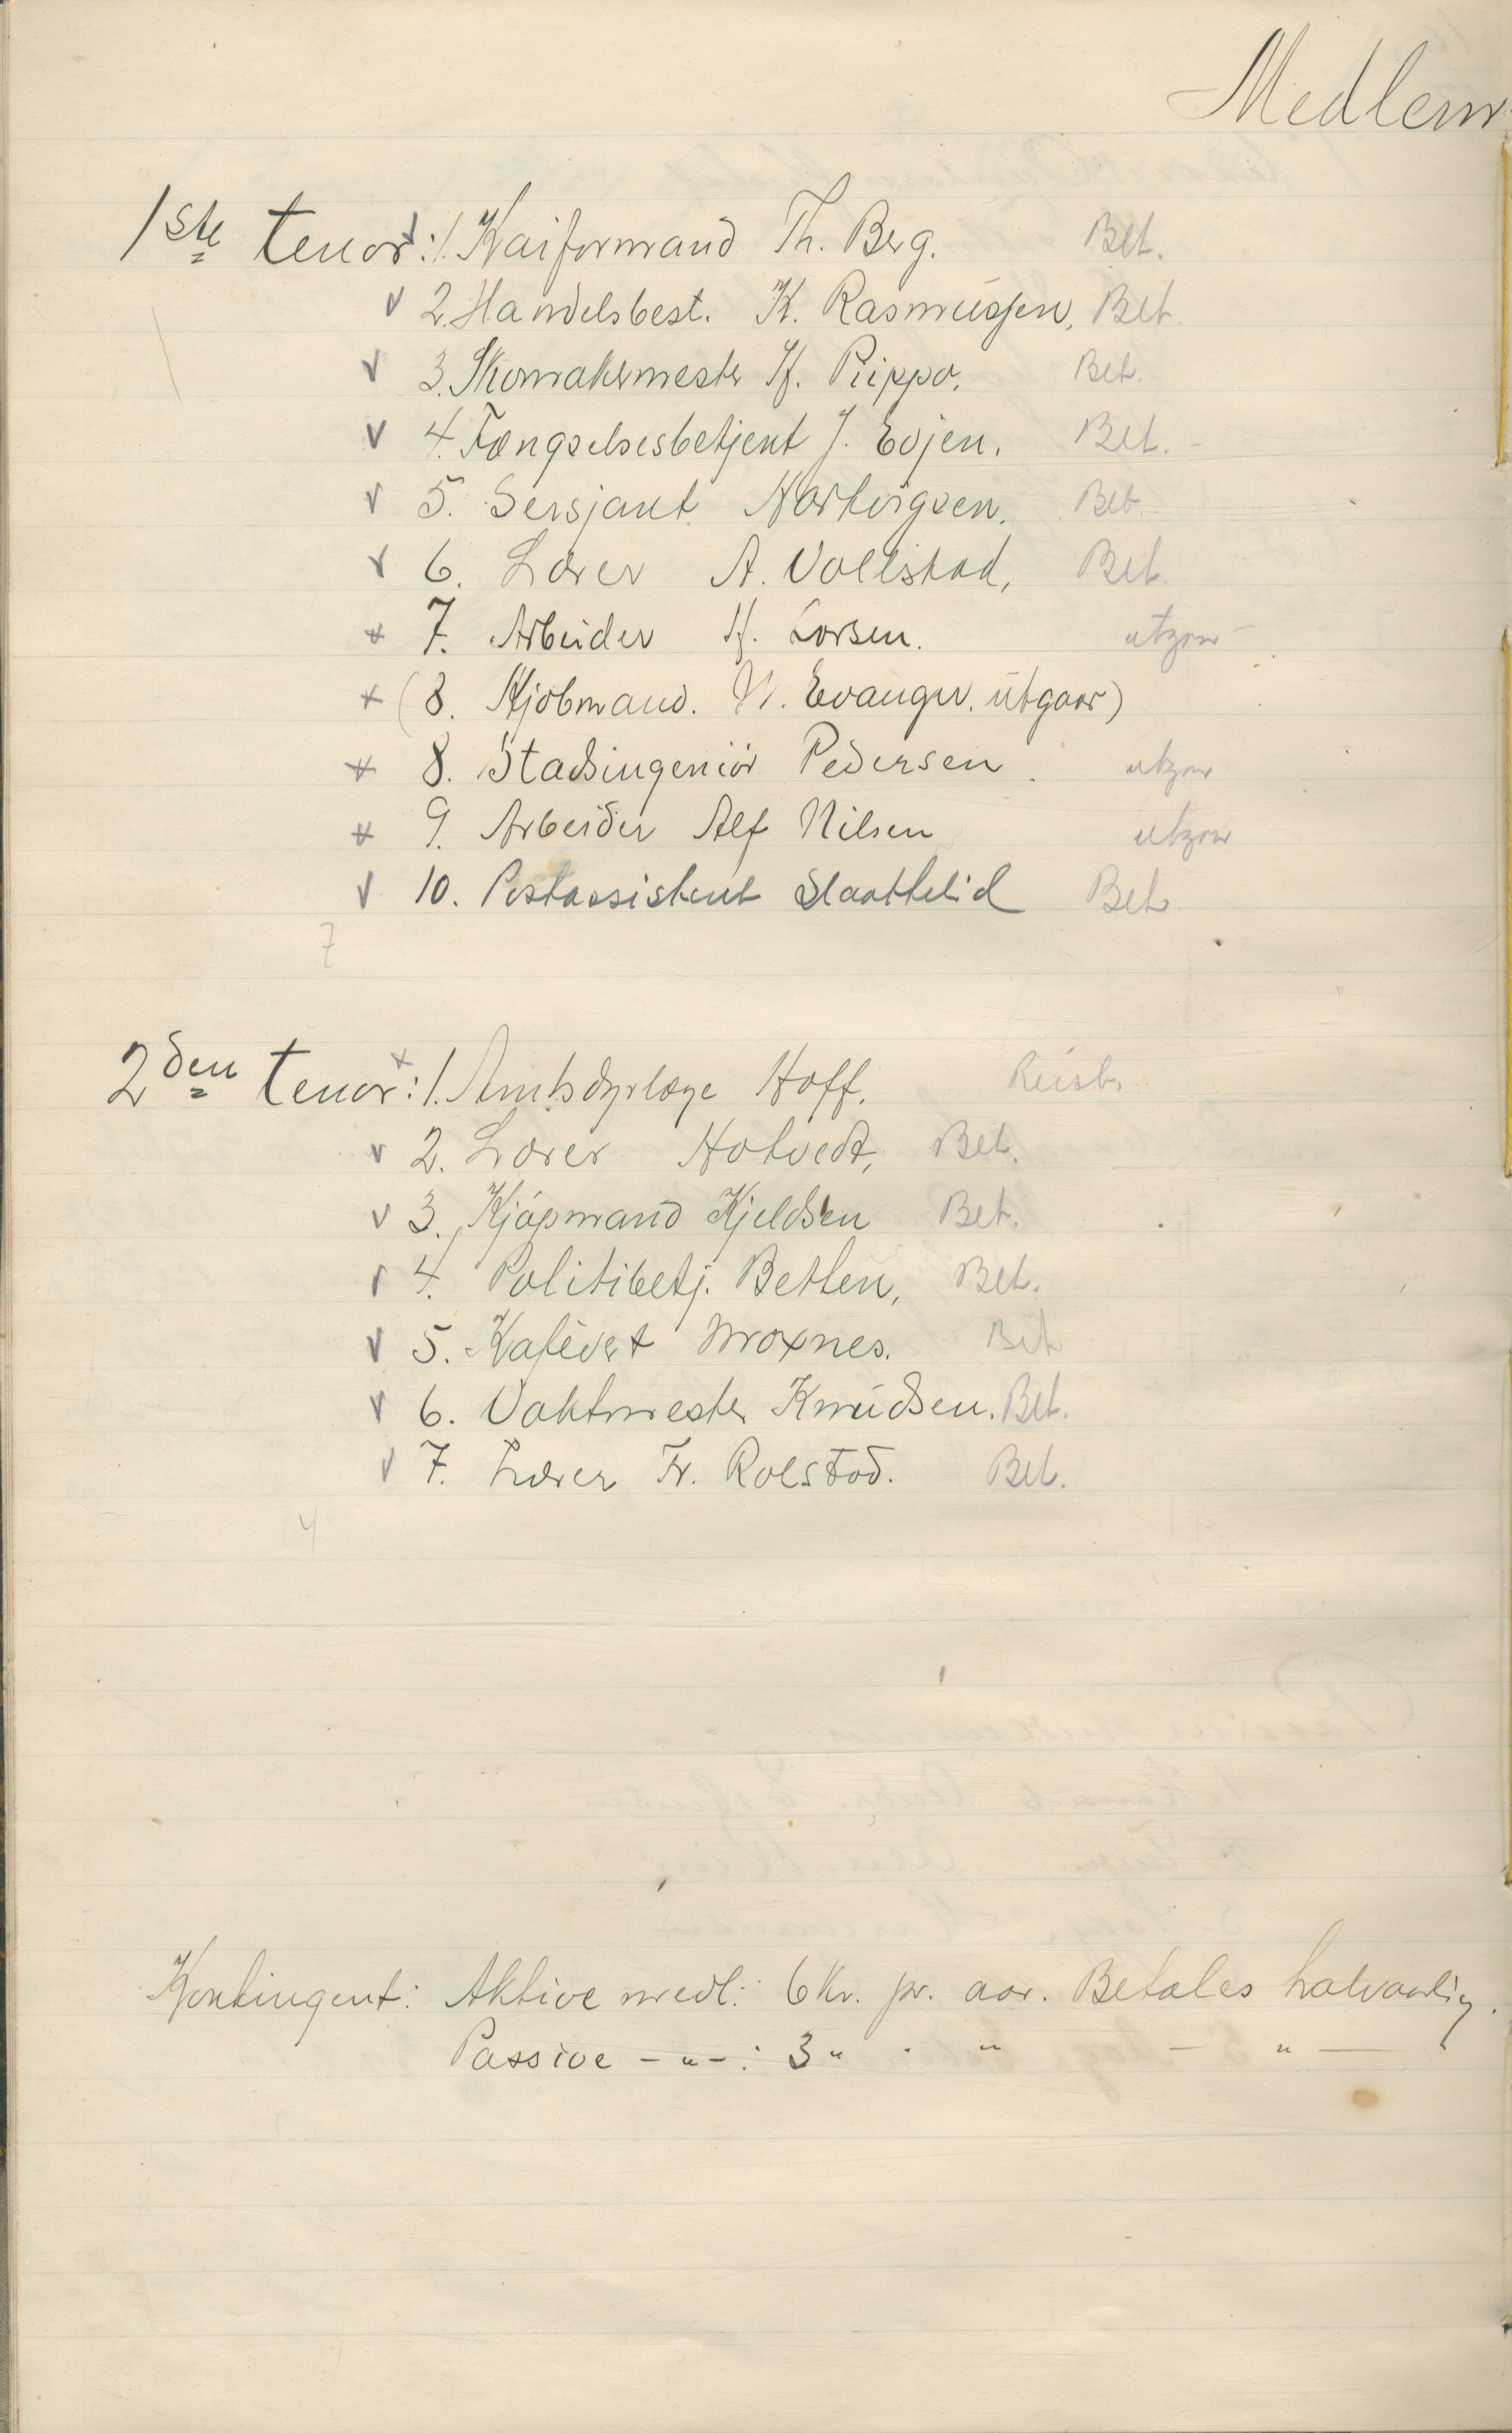 Medlem
1ste tenor: √ 1. Kaiformand Th. Berg. Bet.
√ 2. Handelsbest. K. Rasmussen, Bet.
√ 3. Skomakermester H. Piippo, Bet.
√ 4. Fængselsesbetjent J. Evjen. Bet.
√ 5. Sersjant Hartvigsen. Bet.
√ 6. Lærer A. Vollstad, Bet.
+ 7. Arbeider H. Larsen. utgaar
+ (8. Kjøbmand. N. Evanger. utgaar)
+ 8. Stadsingeniör Pedersen. utgaar
+ 9. Arbeider Alf Nilsen utgaar
√ 10. Postassistent Slaattelid Bet.
7
2den tenor: + 1. Amtsdyrlæge Hoff.
√ 2. Lærer Hotvedt, Bet.
√ 3. Kjöpmand Kjeldsen Bet.
√ 4. Politibetj. Betten, Bet.
√ 5. Kafévert Moxnes. Bet
√ 6. Vaktmester Knudsen. Bet.
√ 7. Lærer Fr. Rolstad. Bet.
4
Kontingent: Aktive medl: 6 Kr. pr. aar. Betales halvaarlig.
Passive - " - : 3 " . " - " -